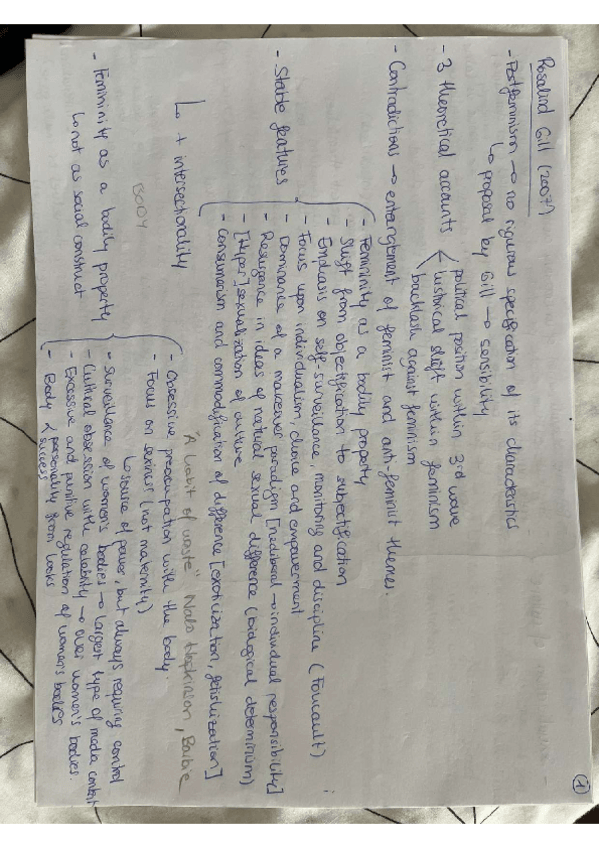 ①
Rosalind Gill (2007)
- Postfeminism → no rigurous specification of its characteristics
↳ proposal by Gill → sensibility
- 3 theoretical accounts < political position within 3rd wave
historical shift within feminism
backlash against feminism
- Contradictions → entanglement of feminist and anti-feminist themes.
- Stable features { - Femininity as a bodily property
- Shift from objectification to subjectification
- Emphasis on self-surveillance, monitoring and discipline (Foucault)
- Focus upon individualism, choice and empowerment
- Dominance of a makeover paradigm [neoliberal → individual responsibility]
- Resurgence in ideas of natural sexual difference (biological determinism)
- [Hyper]sexualization of culture
- Consumerism and commodification of difference [exotization, fetishization]
↳ + intersectionality
"A habit of waste" Nalo Hopkinson, Barbie
BODY
- Femininity as a bodily property
↳ not as social construct
{ - Obsessive preocupation with the body
- Focus on sexiness (not maternity)
- Surveillance of women's bodies → largest type of media content
↳ source of power, but always requiring control
- Cultural obsession with celebrity → over women's bodies.
- Excessive and punitive regulation of women's bodies
- Body < personality from looks
success